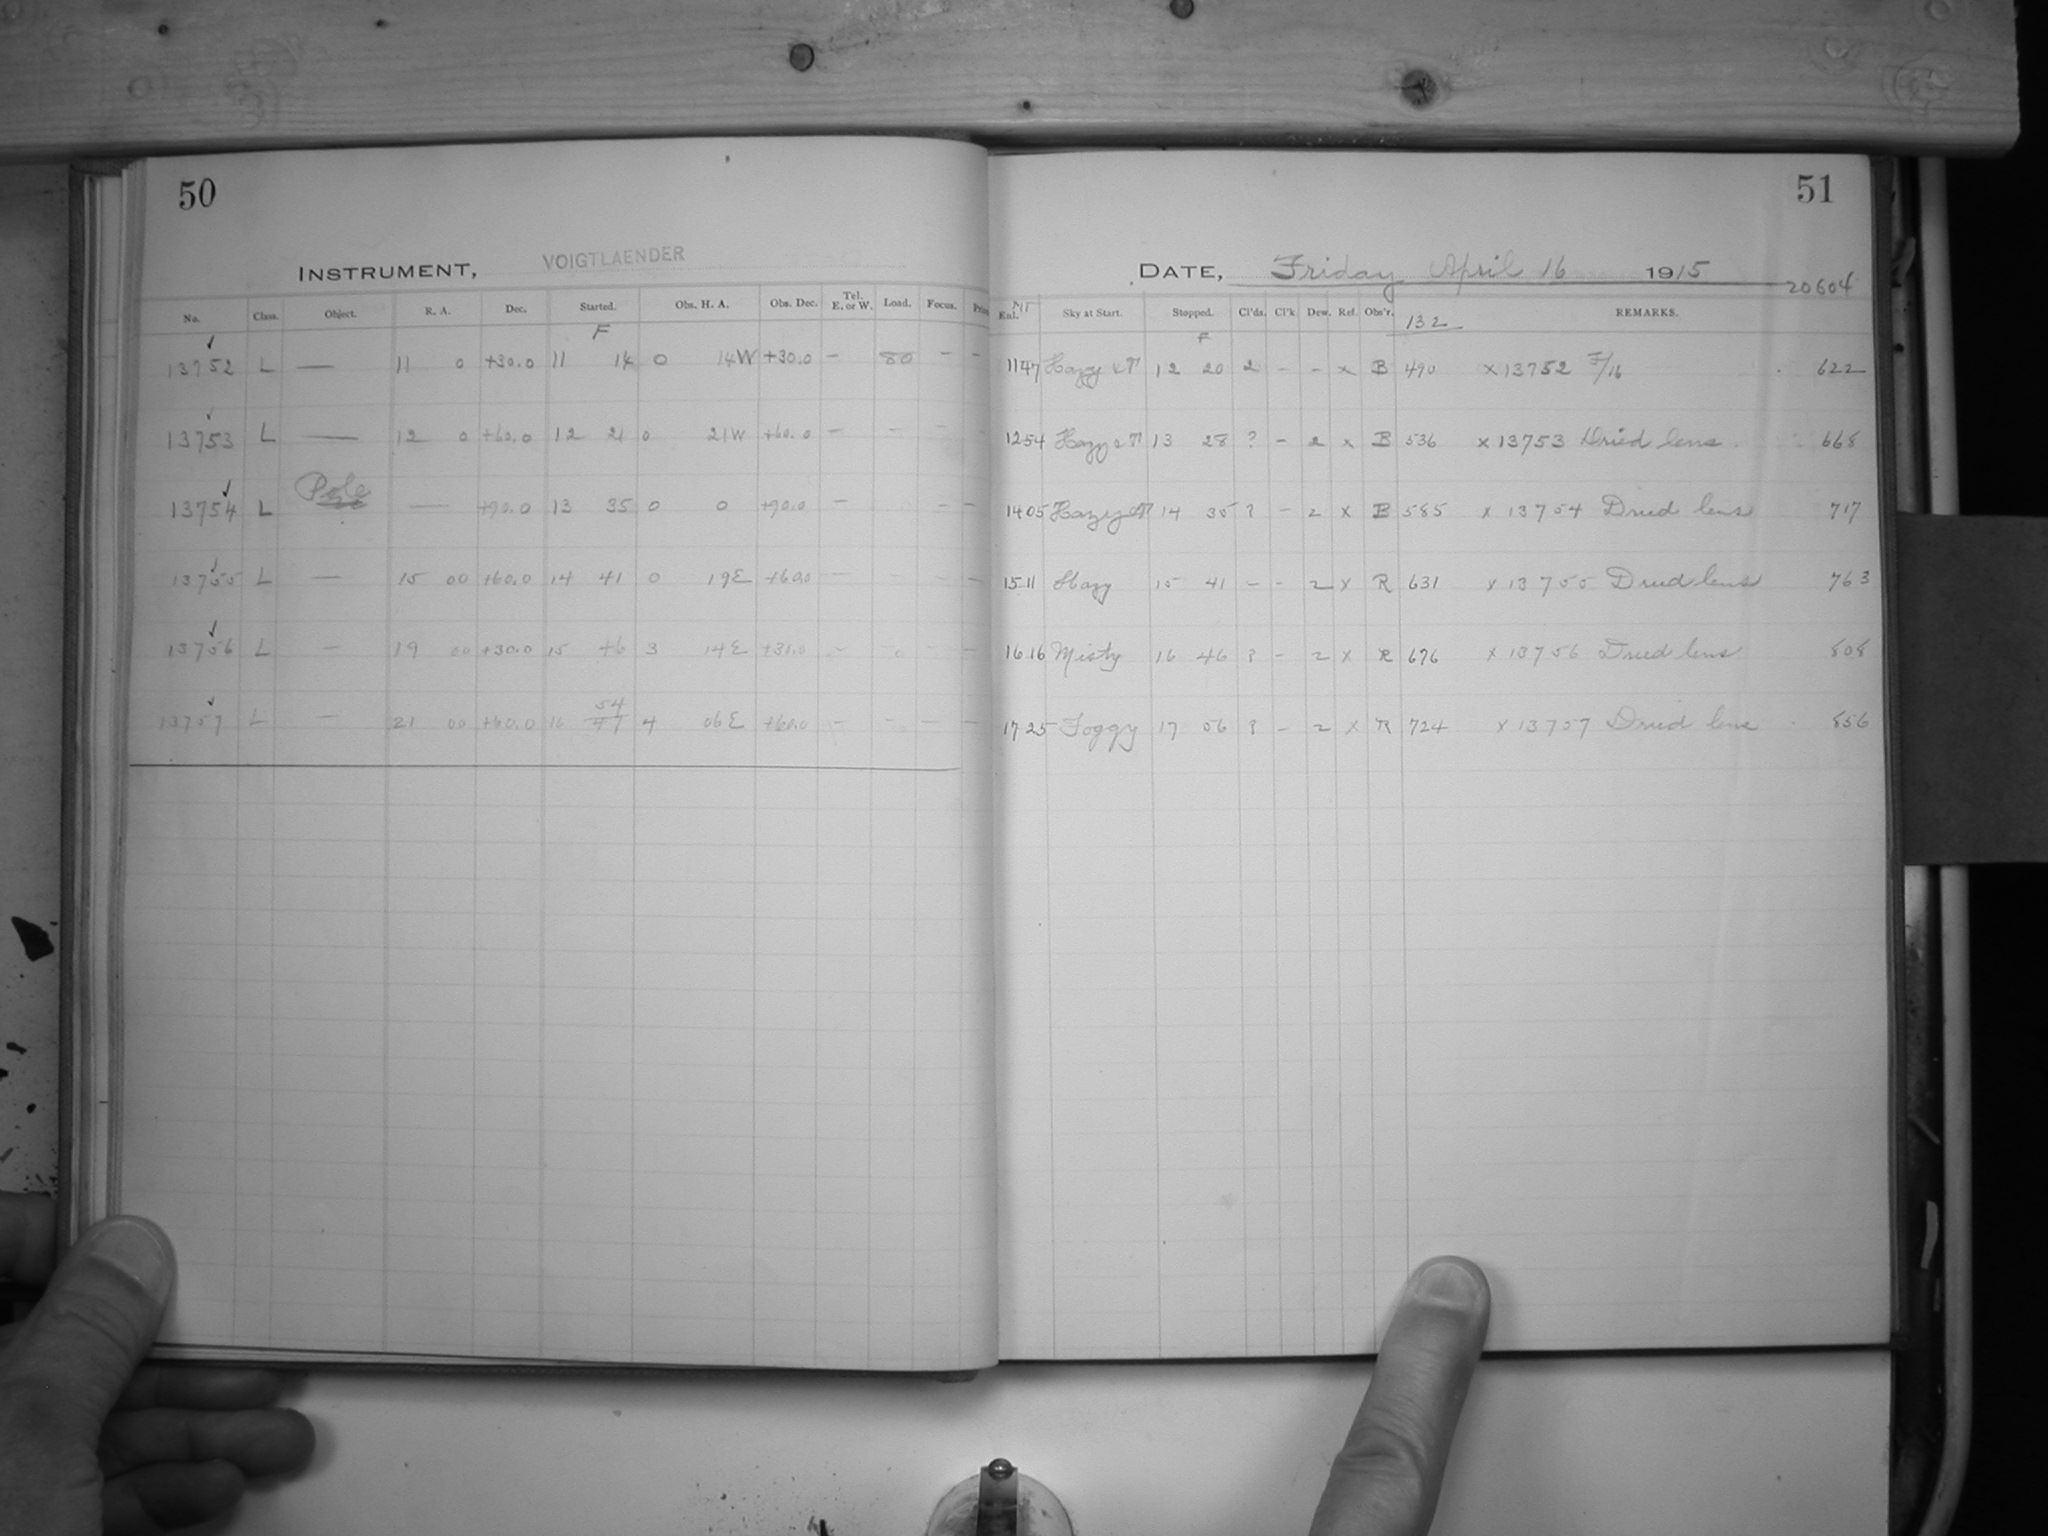 50
INSTRUMENT, VOIGTLAENDER
No. Class. Object. R. A. Dec. Started. Obs. H. A. Obs. Dec. Tel. E. or W. Load. Focus.
F
13752 L — 11 0 +30.0 11 14 0 14W +30.0 — 80 — —
13753 L — 12 0 +60.0 12 21 0 21W +60.0 — — — —
13754 L Pole — +90.0 13 35 0 0 +90.0 — — —
13755 L — 15 00 +60.0 14 41 0 19E +60.0 — — —
13756 L — 19 00 +30.0 15 46 3 14E +30.0 — — — —
13757 L — 21 00 +60.0 16 54 4 06E +60.0 — — — —
51
DATE, Friday April 16 1915
20604
Sky at Start. Stopped. Cl'ds. Cl'k Dew. Ref. Obs'r. 132 REMARKS.
F
1147 Hazy 12 20 2 - - x B 490 x 13752 F/16 622
1254 Hazy 13 28 ? - 2 x B 536 x 13753 Dried lens 668
1405 Hazy 14 35 ? - 2 x B 585 x 13754 Dried lens 717
1511 Hazy 15 41 - - 2 x R 631 x 13755 Dried lens 763
1616 Misty 16 46 ? - 2 x R 676 x 13756 Dried lens 808
1725 Foggy 17 56 ? - 2 x R 724 x 13757 Dried lens 856